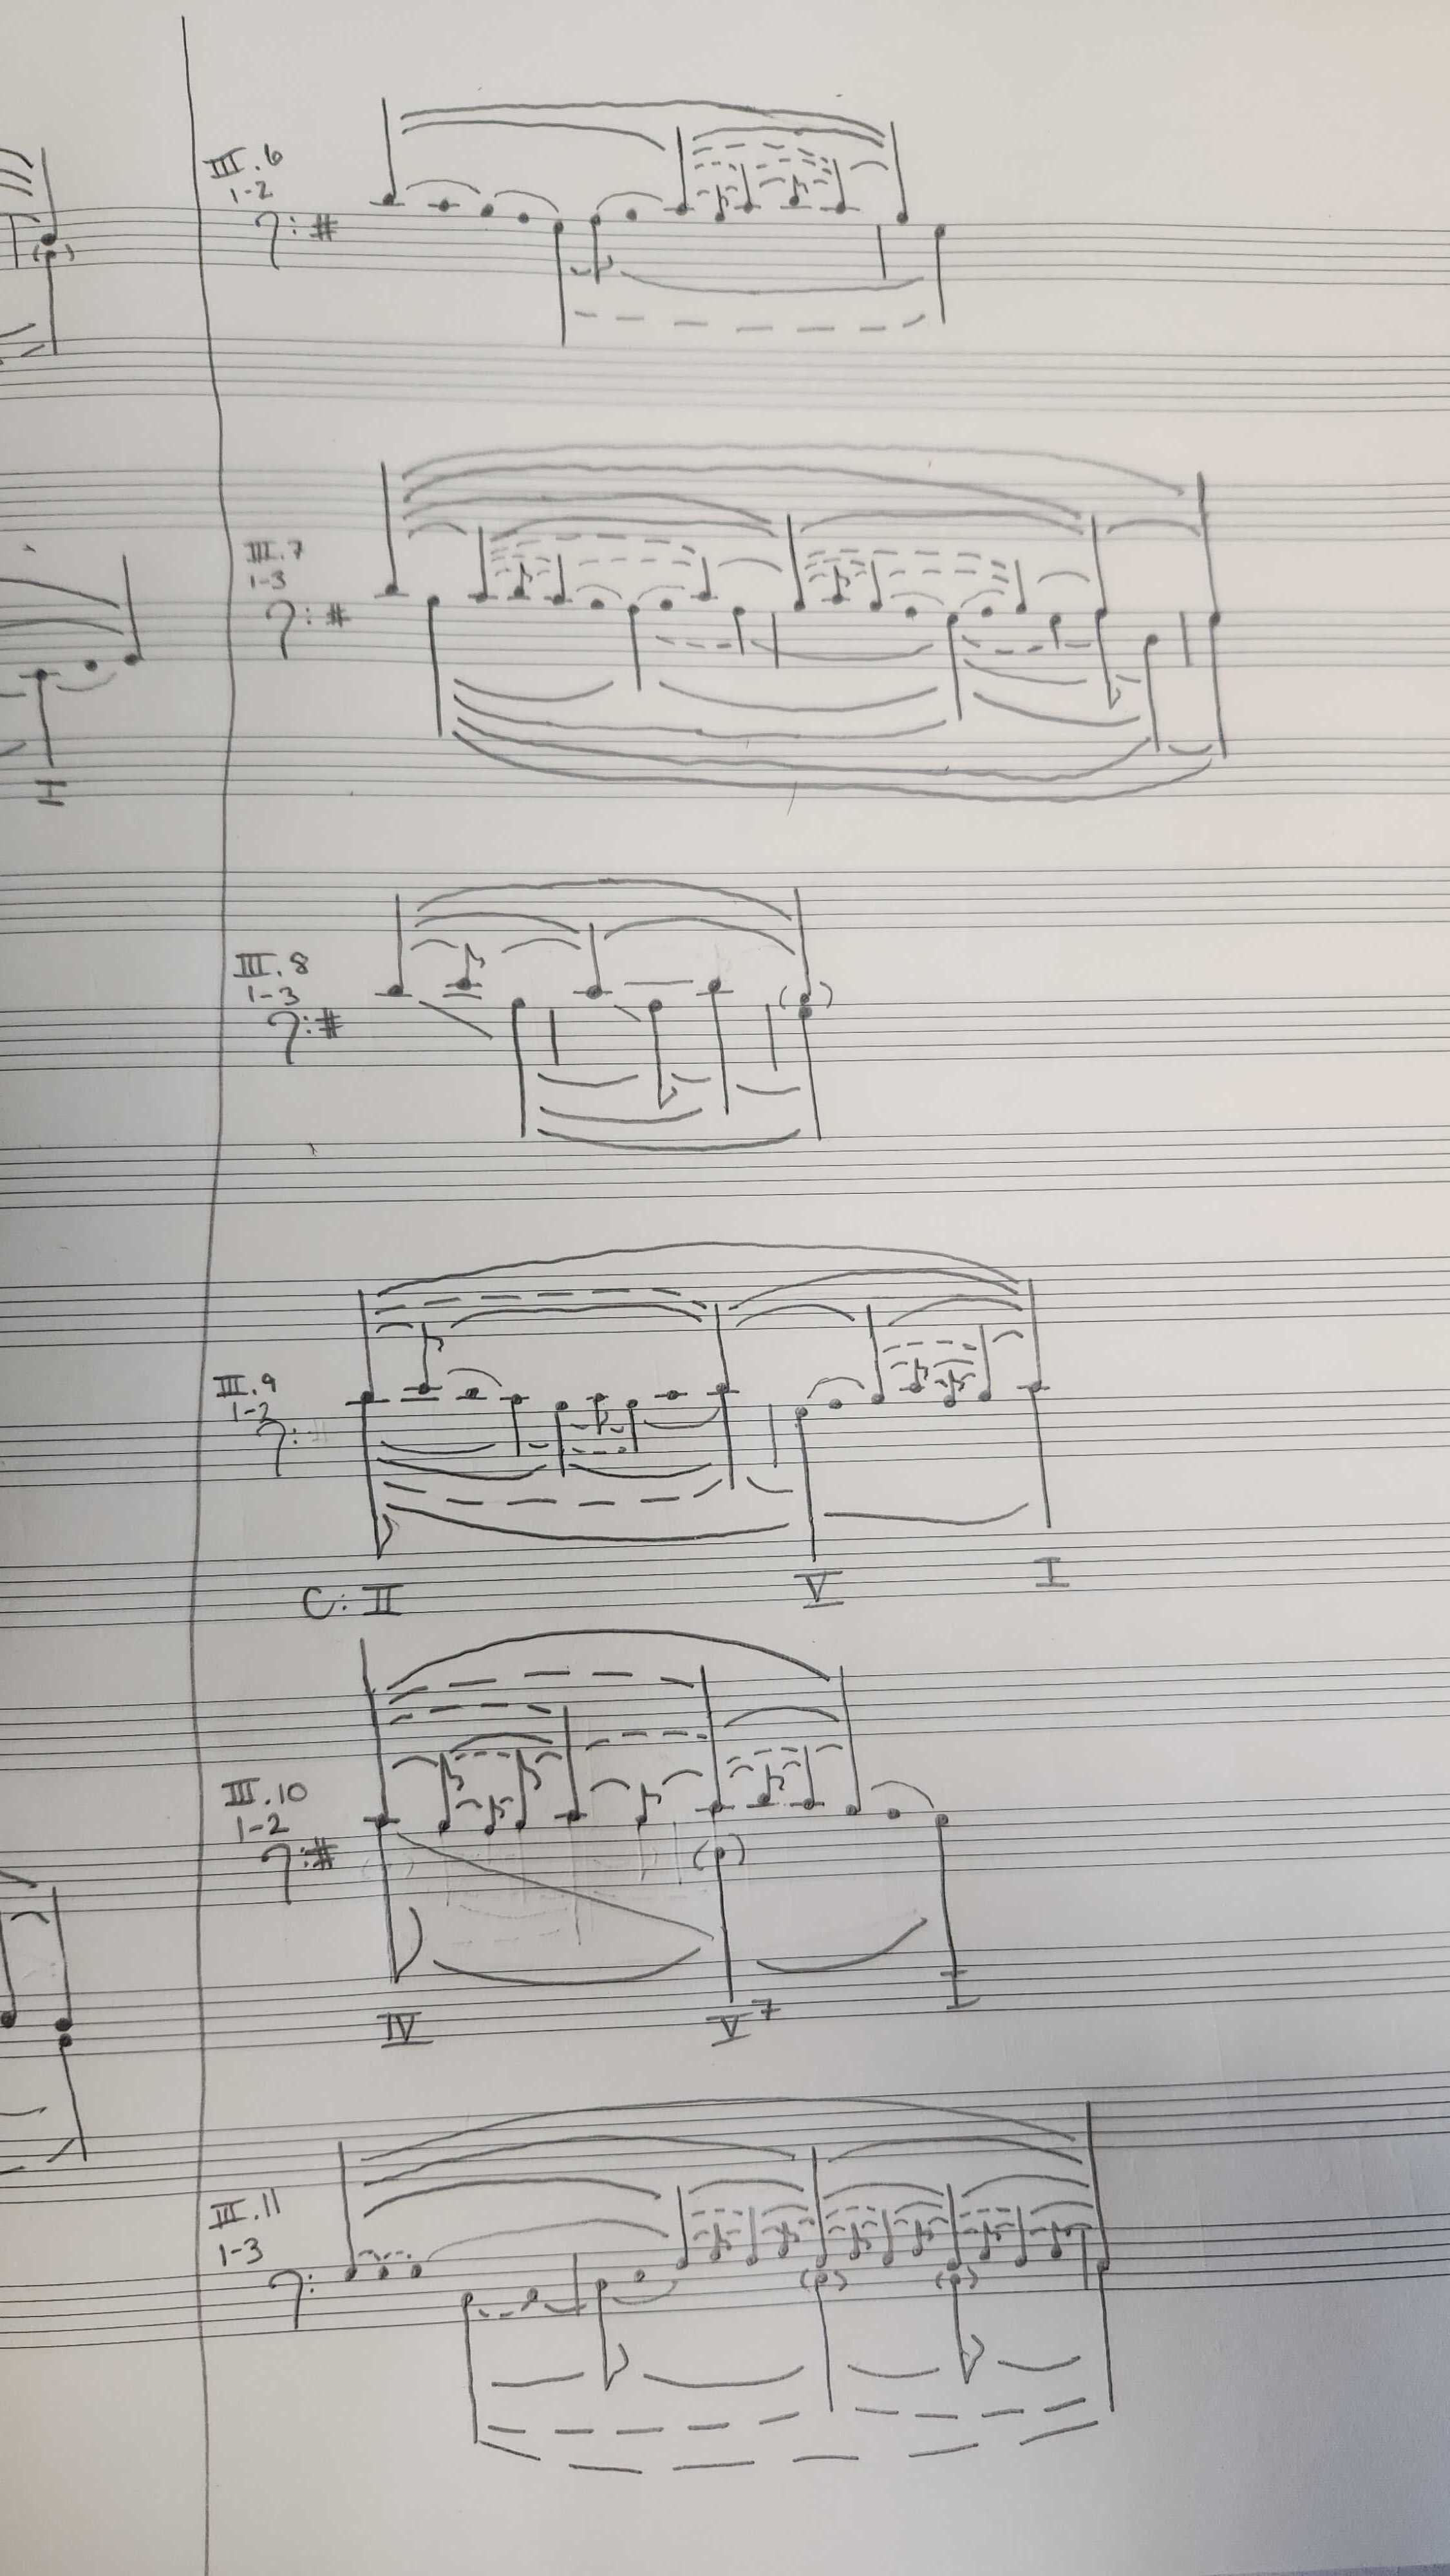 III.6
1-2
III.7
1-3
I
III.8
1-3
III.9
1-2
C: II V I
III.10
1-2
IV V7 I
III.11
1-3